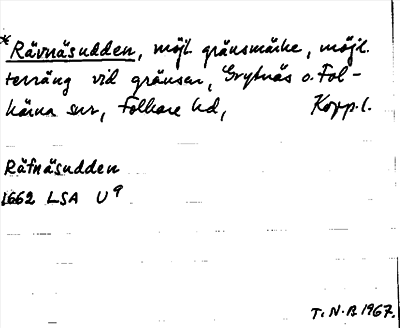 * Rävnäsudden, möjl. gränsmärke, möjl.
terräng vid gränsen, Grytnäs o. Fol-
kärna snr, Folkare hd, Kopp. l.
Räfnäsudden
1662 LSA U 9
T. N. B. 1967.